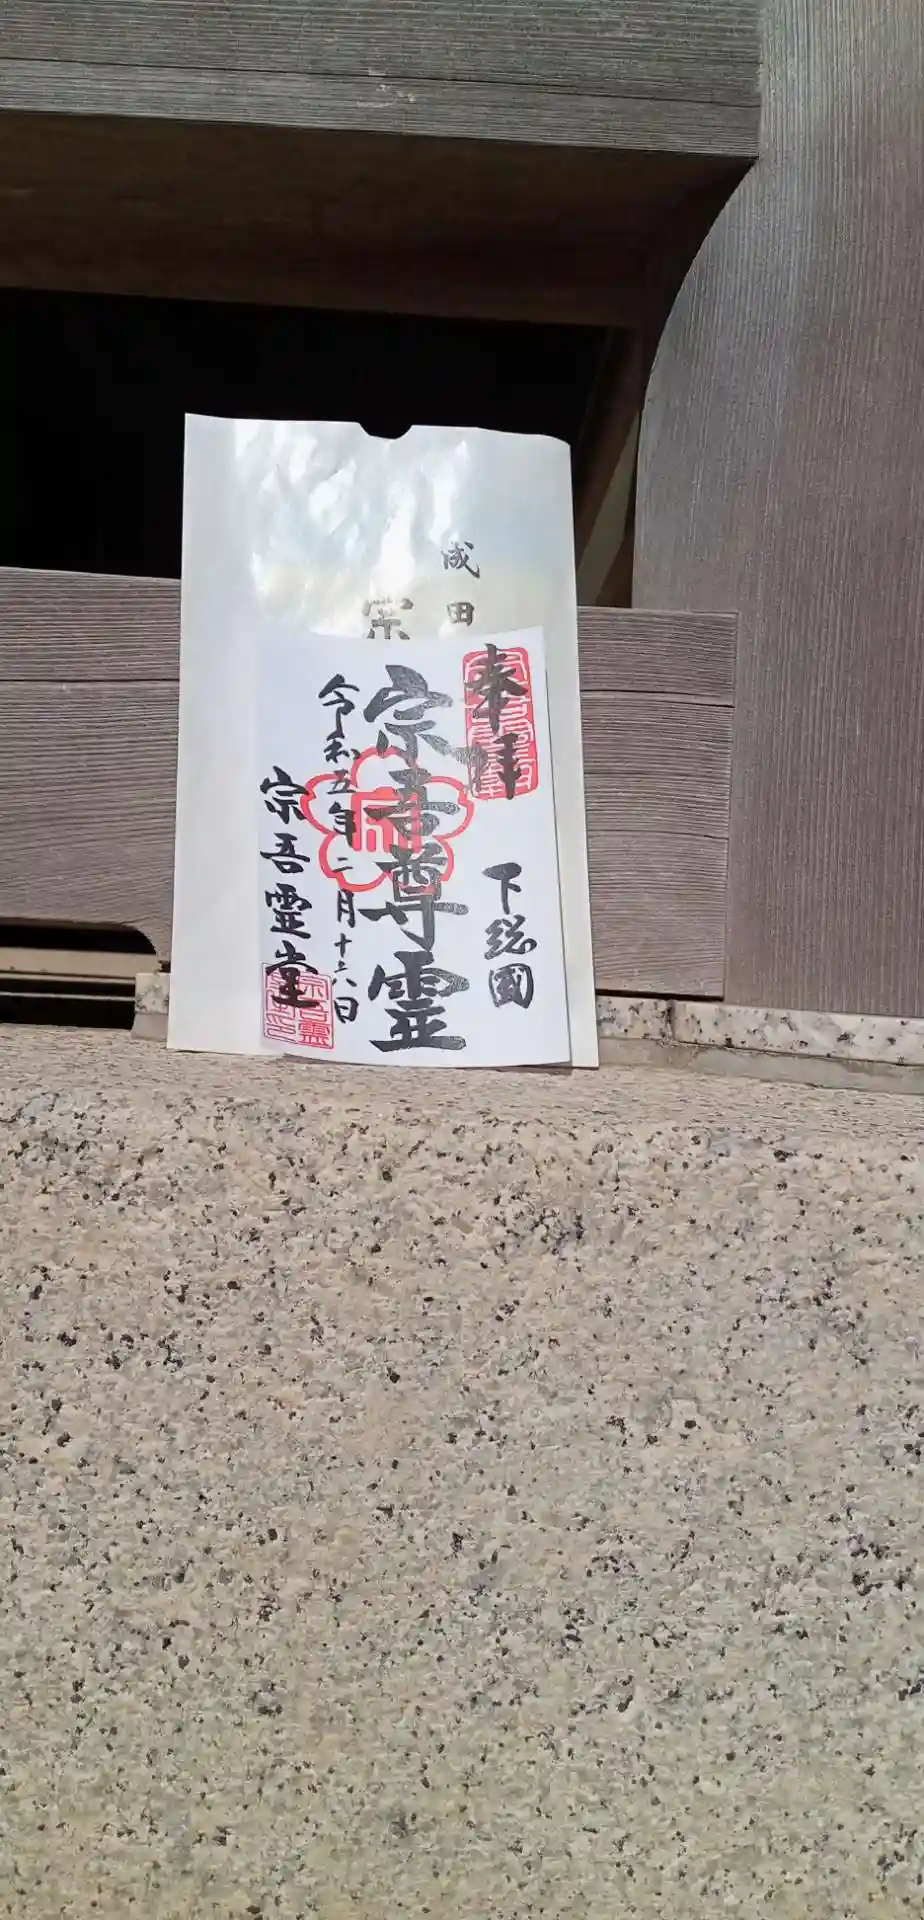 成田
宗
奉拝
下総國
宗吾尊霊
令和五年二月十六日
宗吾霊堂